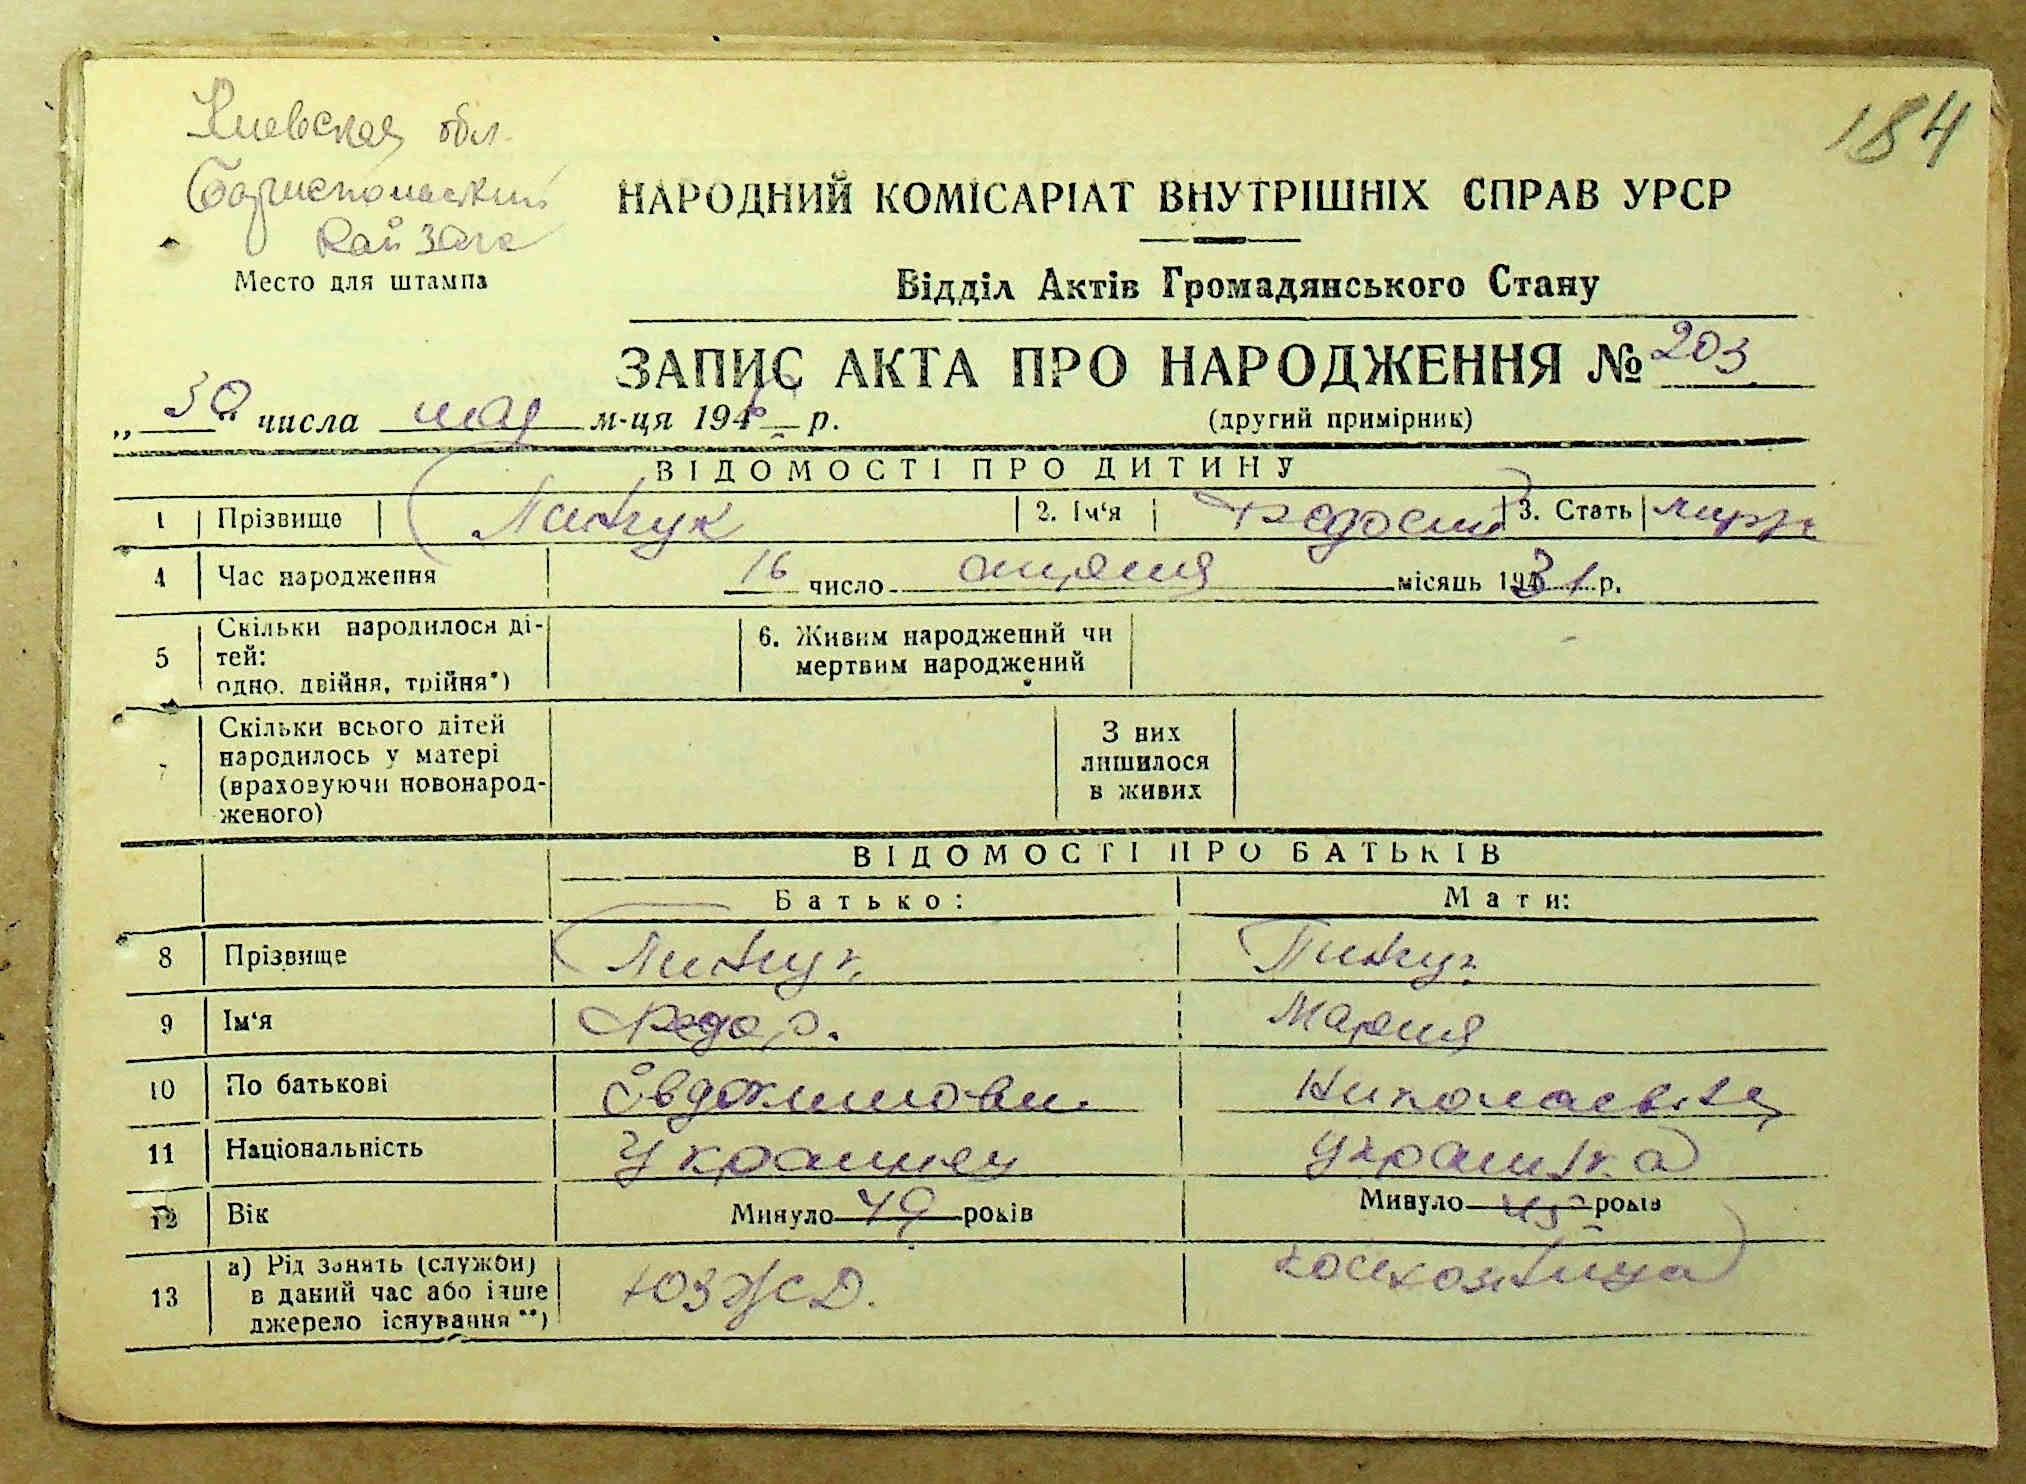 Киевская обл.
184
Бориспольский
Райзагс
НАРОДНИЙ КОМІСАРІАТ ВНУТРІШНІХ СПРАВ УРСР
Место для штампа
Відділ Актів Громадянського Стану
ЗАПИС АКТА ПРО НАРОДЖЕННЯ № 203
„30“ числа мая м-ця 194 р.
(другий примірник)
ВІДОМОСТІ ПРО ДИТИНУ
1 Прізвище 2. Ім‘я Феодосий 3. Стать
4 Час народження 16 число апреля місяць 1931 р.
5 Скільки народилося ді-
тей:
одно, двійня, трійня*)
6. Живим народжений чи
мертвим народжений
7 Скільки всього дітей
народилось у матері
(враховуючи новонарод-
женого)
З них
лишилося
в живих
ВІДОМОСТІ ПРО БАТЬКІВ
Батько: Мати:
8 Прізвище
9 Ім‘я Федор. Мария
10 По батькові Евдокимови. Николаевна
11 Національність Украинец Украинка
12 Вік Минуло 49 років Минуло років
13 а) Рід занять (служби)
в даний час або інше
джерело існування**)
ЮЗЖД. колхозница